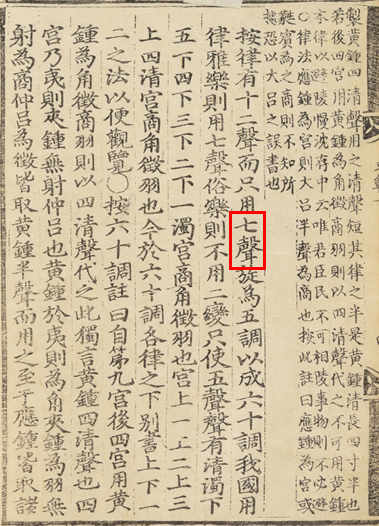 製黃鍾四清聲用之清聲短其律之半是黃鍾長四寸半也
若後四宮用黃鍾為角徵商羽則以四清聲代之不可用黃鍾
本律以避陵慢沈存中云唯君臣民不可相陵事物則不必避
○律法應鍾為宮則大呂半聲為商也按此註曰應鍾為宮或
蕤賓為之商則不知所
據恐以大呂之誤書也
按律有十二聲而只用七聲旋為五調以成六十調我國用
律雅樂則用七聲俗樂則不用二變只使五聲聲有清濁下
五下四下三下二下一濁宮商角徵羽也宮上一上二上三
上四清宮商角徵羽也今於六十調各律之下別著上下一
二之法以便觀覽○按六十調註曰自第九宮後四宮用黃
鍾為角徵商羽則以四清聲代之此獨言黃鍾四清聲也四
宮乃夷則夾鍾無射仲呂也黃鍾於夷則為角夾鍾為羽無
射為商仲呂為徵皆取黃鍾半聲而用之至于應鍾皆取諸